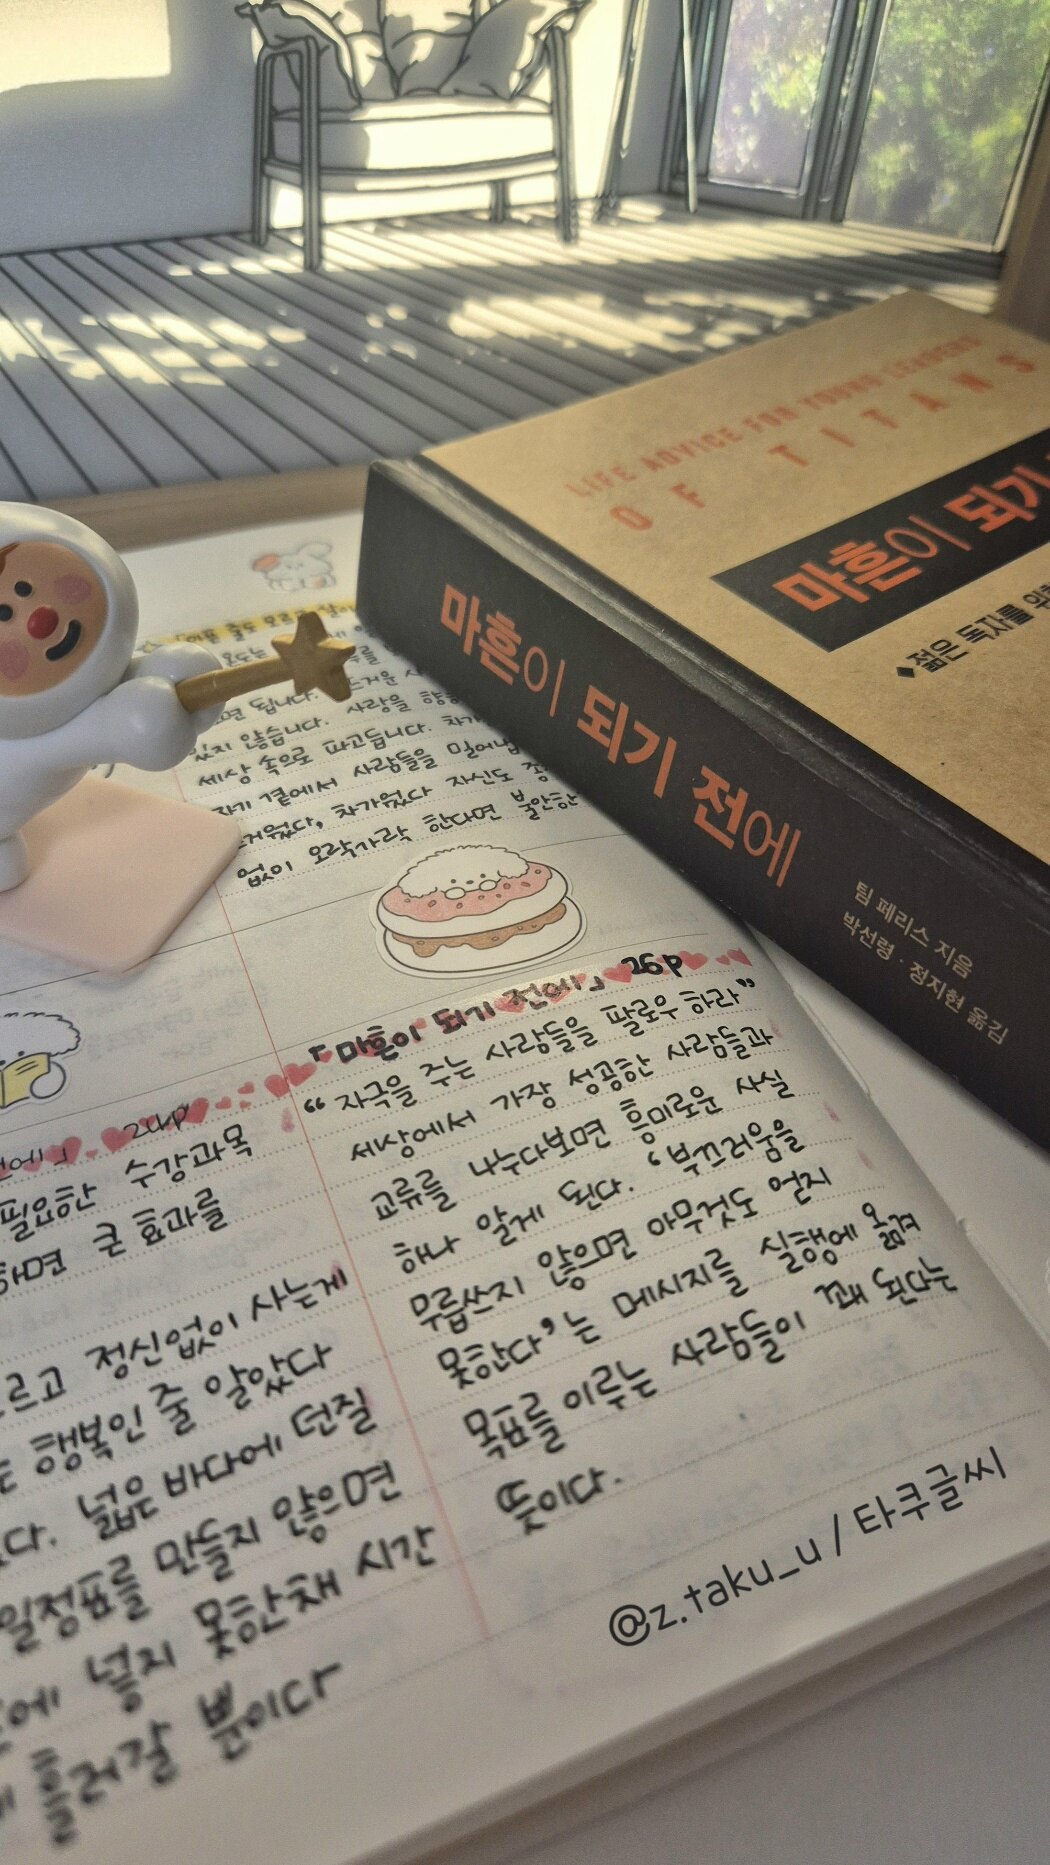 LIFE ADVICE FOR YOUNG LEADERS
OF TITANS
마흔이 되기
◆젊은 독자를 위한
마흔이 되기 전에
팀 페리스 지음
박선령 · 정지현 옮김
됩니다.
있지 않습니다. 사랑을
세상 속으로 파고듭니다.
자기 곁에서 사람들을
차가웠다 자신도
없이 오락가락 한다면 불안한
「마흔이 되기 전에」 26p
“자극을 주는 사람들을 팔로우하라”
세상에서 가장 성공한 사람들과
교류를 나누다보면 흥미로운 사실
하나 알게 된다. ‘부끄러움을
무릅쓰지 않으면 아무것도 얻지
못한다’는 메시지를 실행에 옮겨
목표를 이루는 사람들이 꽤 된다는
뜻이다.
필요한 수강과목
하면 큰 효과를
모르고 정신없이 사는게
행복인 줄 알았다
넓은 바다에 던질
일정표를 만들지 않으면
넣지 못한채 시간
흘러갈 뿐이다
@z.taku_u / 타쿠글씨